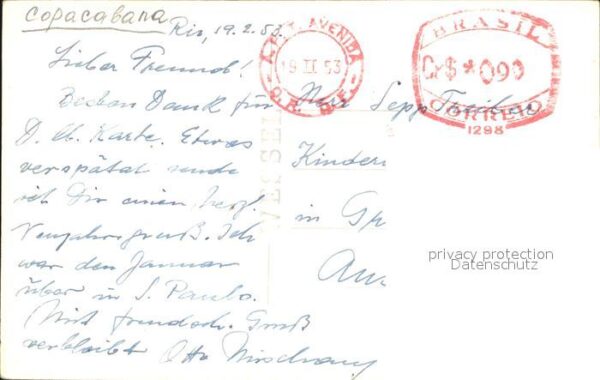 Copacabana
Rio, 19.2.53.
A.P.T. AVENIDA
19 II 53
D.R. - D.F.
BRASIL
Cr$ *0,90
CORREIO
1298
Lieber Freund!
Besten Dank für
D. lb. Karte. Etwas
verspätet sende
ich Dir einen herzl.
Neujahrsgruß. Ich
war den Januar
über in S. Paulo.
Mit freundsch. Gruß
verbleibt Otto
WESSEL
Herr Sepp
Kinder
in Gr
Au
privacy protection
Datenschutz